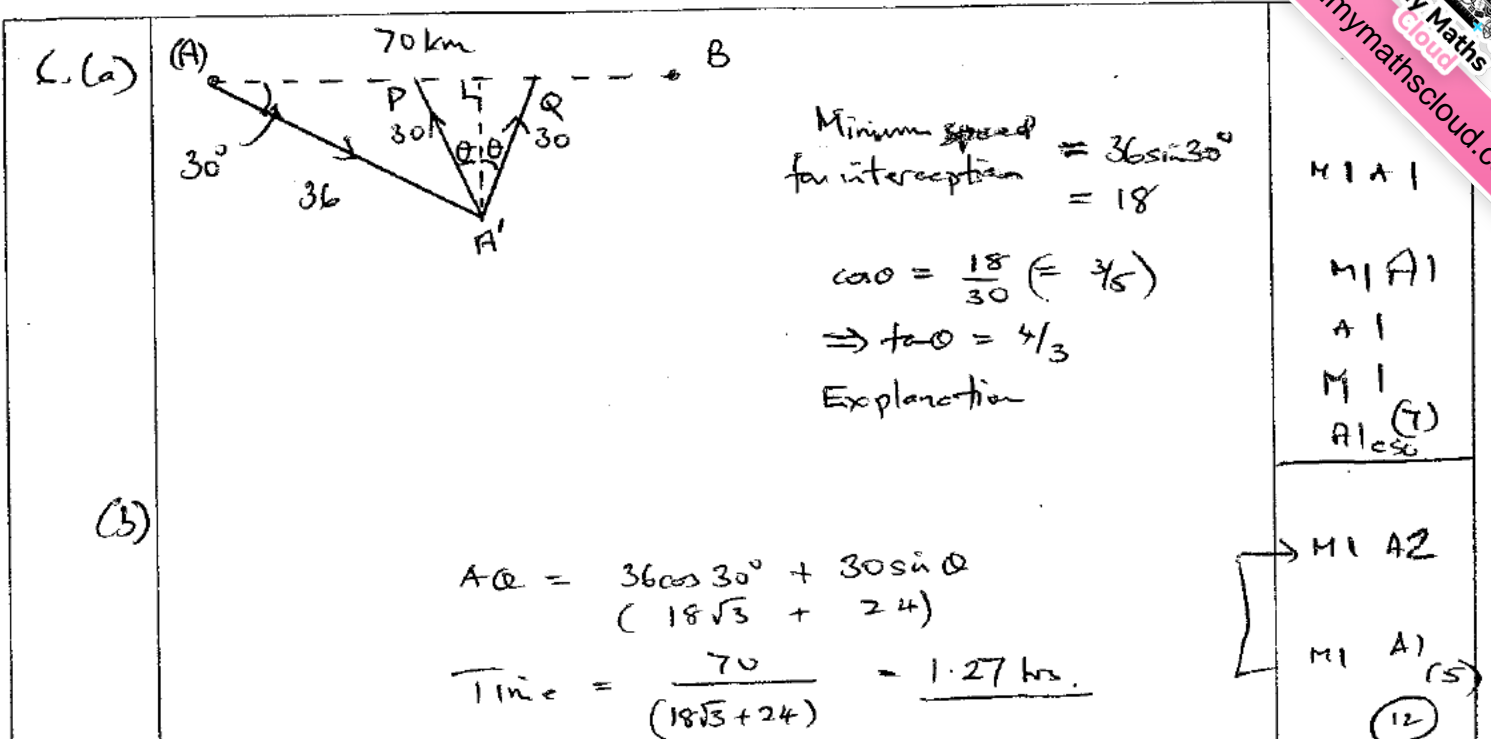 6.(a)
(A) 70 km B
P Q
30° 36 30 θ θ 30
A'
Minimum speed for interception = 36sin30°
= 18
M1 A1
cosθ = 18/30 (= 3/5)
M1 A1
⇒ tanθ = 4/3
A1
Explanation
M1
A1 cso (7)
(b)
AQ = 36cos30° + 30sinθ
(18√3 + 24)
M1 A2
Time = 70/(18√3+24) = 1.27 hrs.
M1 A1
(5)
(12)
My Maths
Cloud
mymathscloud.c